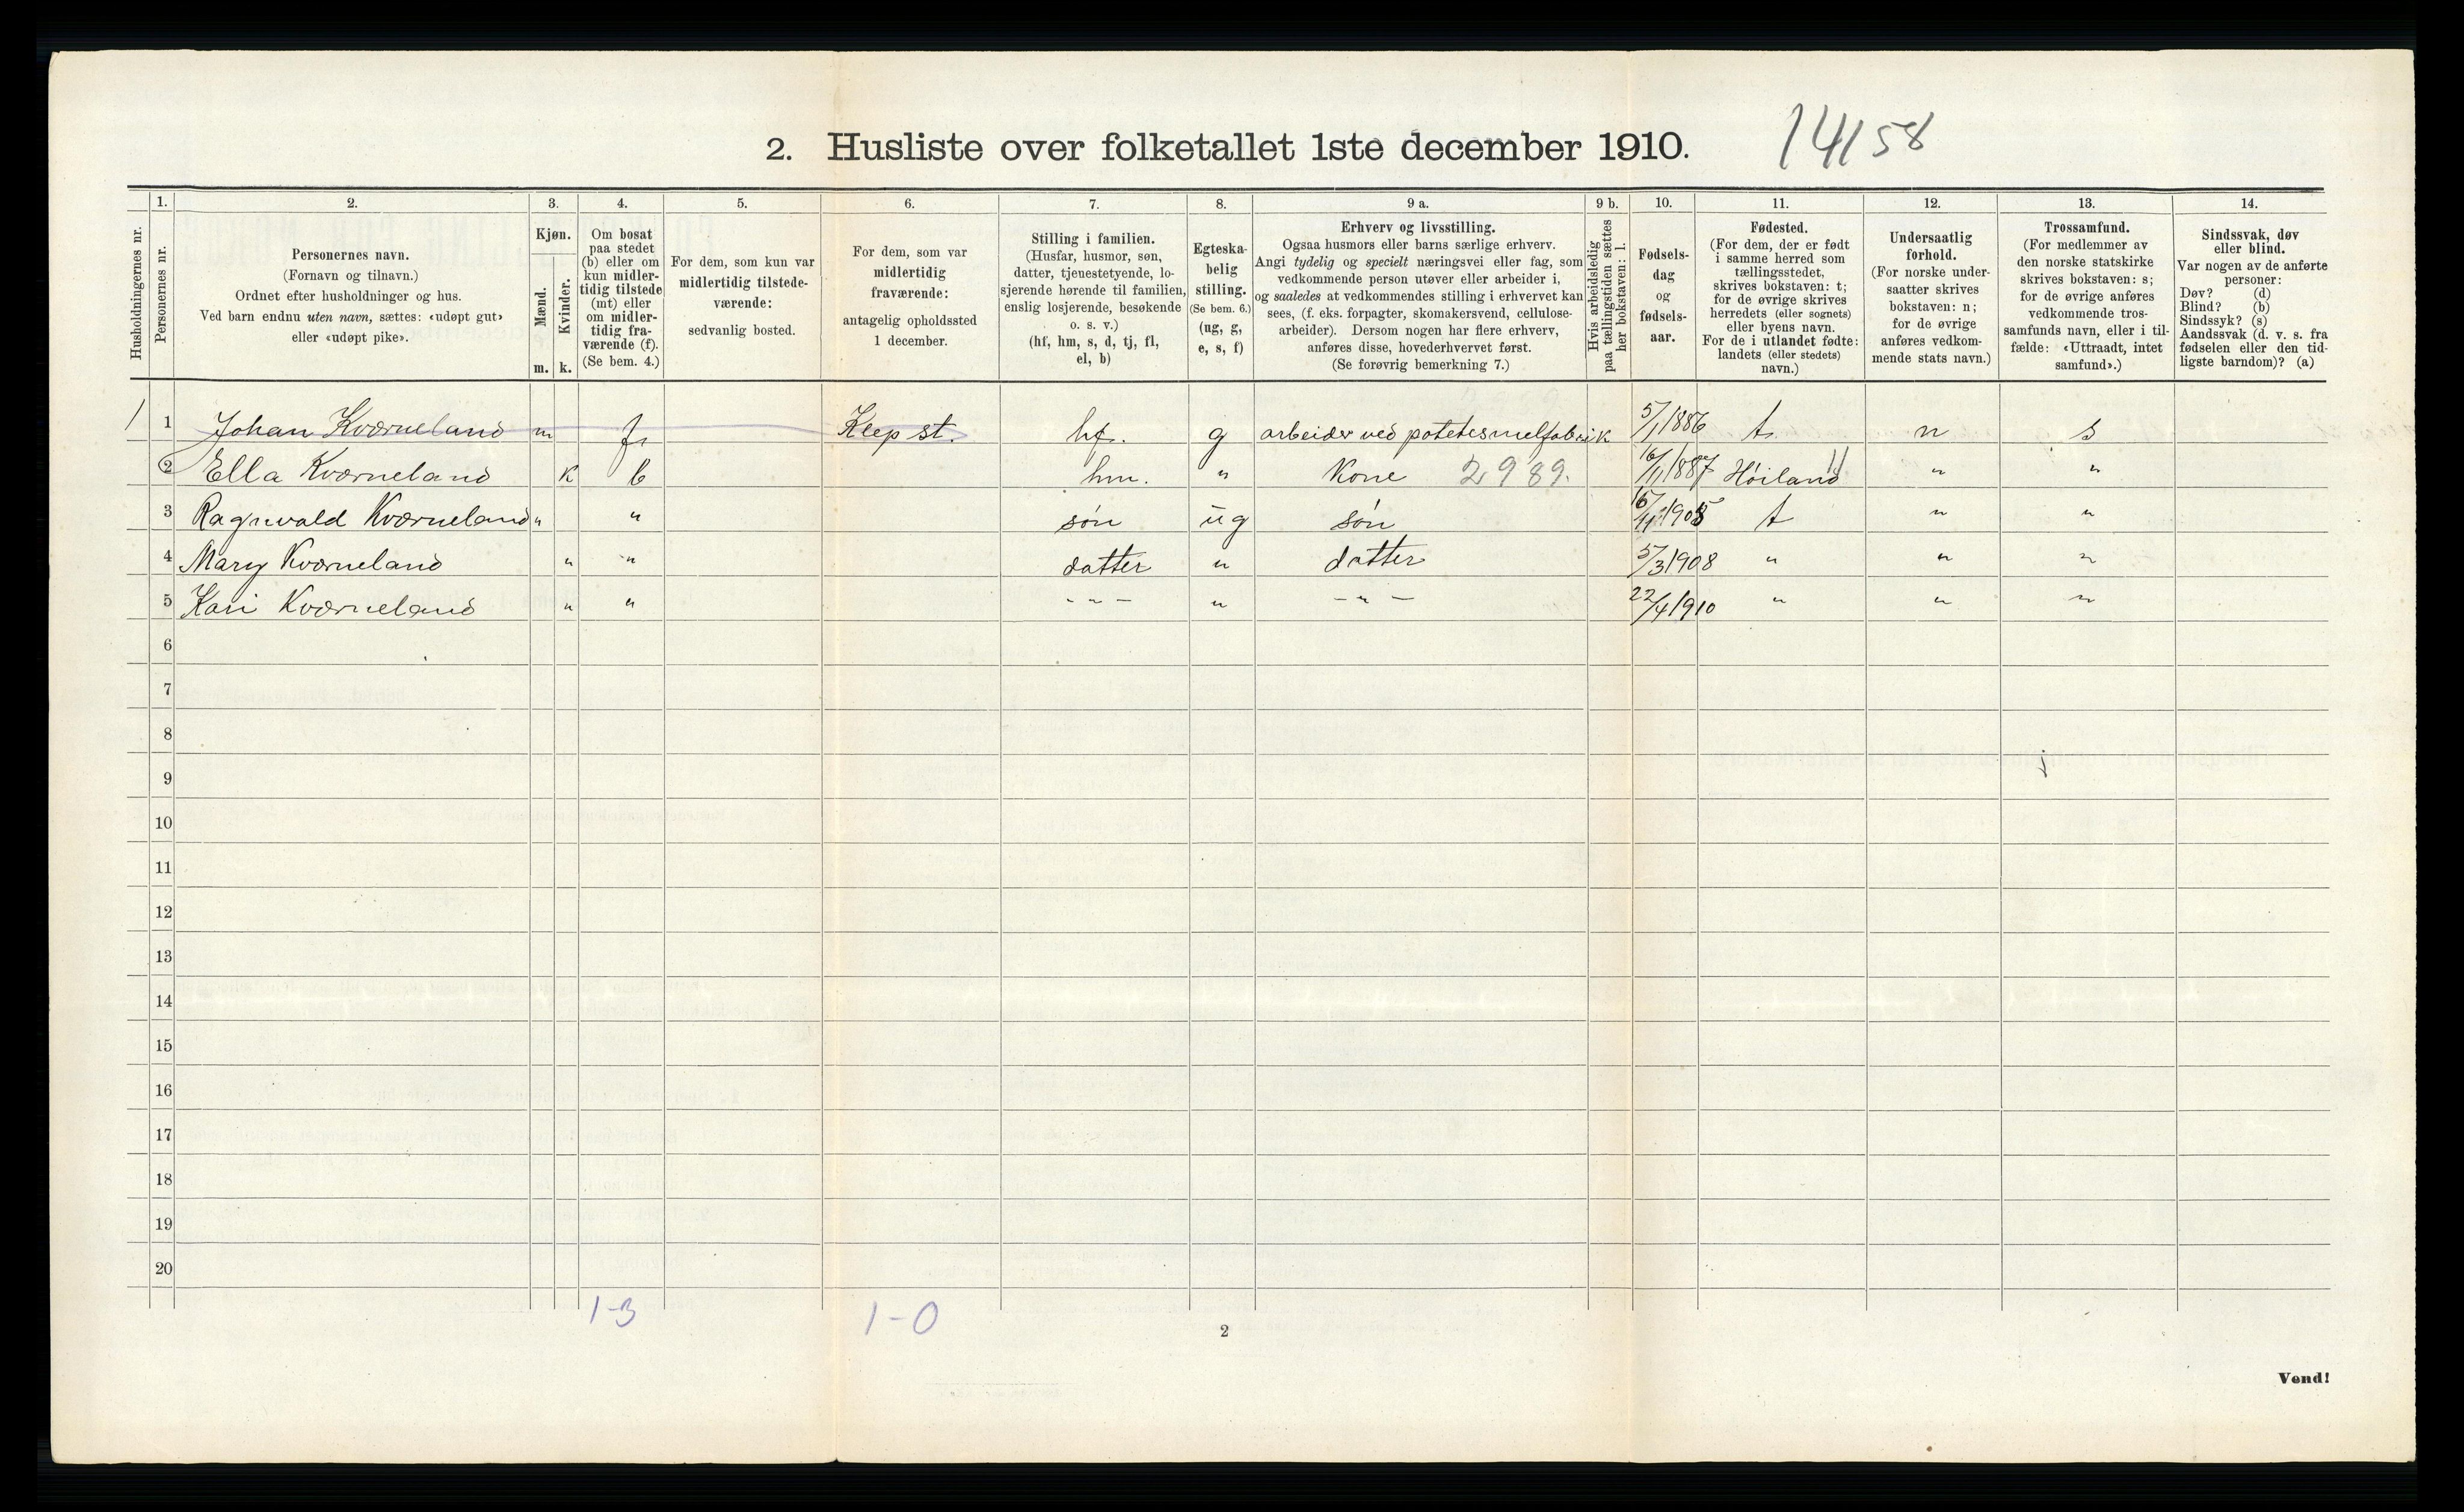 2. Husliste over folketallet 1ste december 1910. 14158
Husholdningernes nr.
1. Personernes nr.
2. Personernes navn.
(Fornavn og tilnavn.)
Ordnet efter husholdninger og hus.
Ved barn endnu uten navn, sættes: «udøpt gut»
eller «udøpt pike».
3. Kjøn.
Mænd. Kvinder.
m. k.
4. Om bosat
paa stedet
(b) eller om
kun midler-
tidig tilstede
(mt) eller
om midler-
tidig fra-
værende (f).
(Se bem. 4.)
5. For dem, som kun var
midlertidig tilstede-
værende:
sedvanlig bosted.
6. For dem, som var
midlertidig
fraværende:
antagelig opholdssted
1 december.
7. Stilling i familien.
(Husfar, husmor, søn,
datter, tjenestetyende, lo-
sjerende hørende til familien,
enslig losjerende, besøkende
o. s. v.)
(hf, hm, s, d, tj, fl,
el, b)
8. Egteska-
belig
stilling.
(Se bem. 6.)
(ug, g,
e, s, f)
9 a. Erhverv og livsstilling.
Ogsaa husmors eller barns særlige erhverv.
Angi tydelig og specielt næringsvei eller fag, som
vedkommende person utøver eller arbeider i,
og saaledes at vedkommendes stilling i erhvervet kan
sees, (f. eks. forpagter, skomakersvend, cellulose-
arbeider). Dersom nogen har flere erhverv,
anføres disse, hovederhvervet først.
(Se forøvrig bemerkning 7.)
9 b. Hvis arbeidsledig
paa tællingstiden sættes
her bokstaven: l.
10. Fødsels-
dag
og
fødsels-
aar.
11. Fødested.
(For dem, der er født
i samme herred som
tællingsstedet,
skrives bokstaven: t;
for de øvrige skrives
herredets (eller sognets)
eller byens navn.
For de i utlandet fødte:
landets (eller stedets)
navn.)
12. Undersaatlig
forhold.
(For norske under-
saatter skrives
bokstaven: n;
for de øvrige
anføres vedkom-
mende stats navn.)
13. Trossamfund.
(For medlemmer av
den norske statskirke
skrives bokstaven: s;
for de øvrige anføres
vedkommende tros-
samfunds navn, eller i til-
fælde: «Uttraadt, intet
samfund».)
14. Sindssvak, døv
eller blind.
Var nogen av de anførte
personer:
Døv? (d)
Blind? (b)
Sindssyk? (s)
Aandssvak (d. v. s. fra
fødselen eller den tid-
ligste barndom)? (a)
1 1 Johan Kværneland m f. Klep st. hf. g arbeider ved potetesmelfabrik 5/1 1886 t. n s
2 Ella Kværneland k b hm. " Kone 2989. 16/11 1887 Höiland " "
3 Ragnvald Kværneland " " søn ug søn t " "
4 Mary Kværneland " " datter " datter 5/3 1908 " " "
5 Kari Kværneland " " - " - " - " - 22/4 1910 " " "
6
7
8
9
10
11
12
13
14
15
16
17
18
19
20
1-3 1-0
2
Vend!